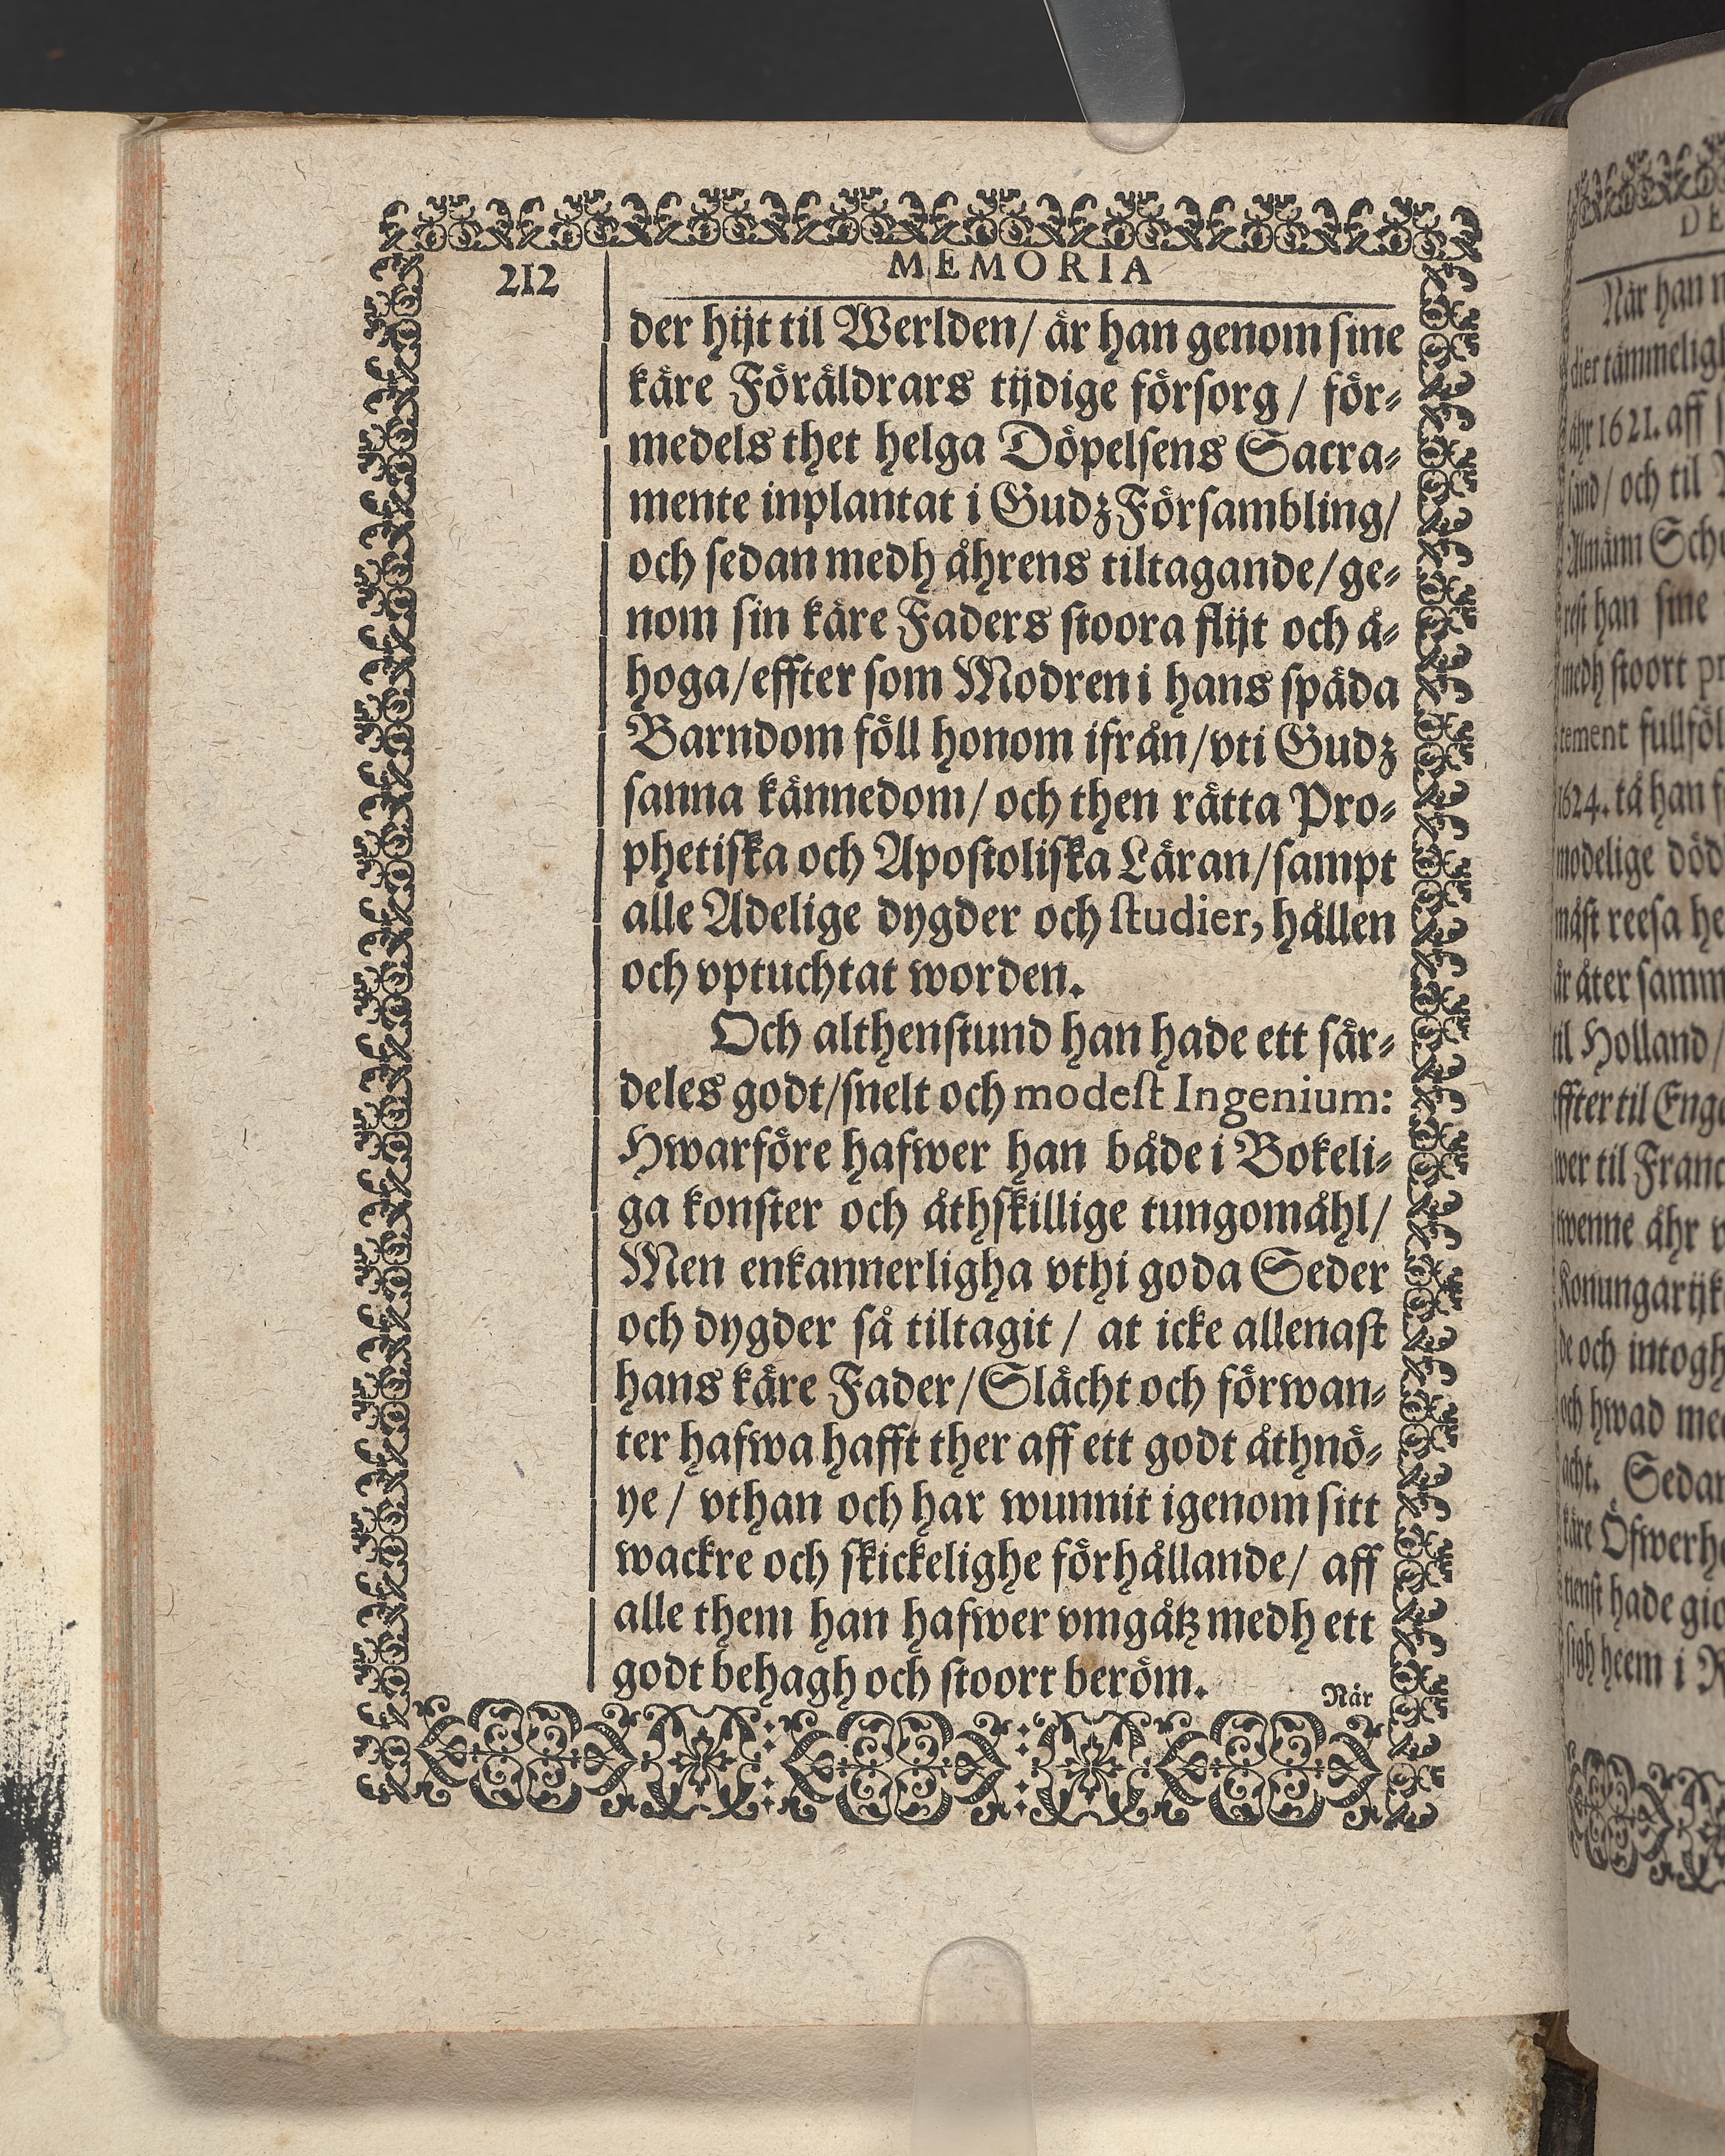 212
MEMORIA
der hijt til Werlden/ är han genom sine
käre Föräldrars tijdige försorg / för-
medels thet helga Döpelsens Sacra-
mente inplantat i Gudz Försambling/
och sedan medh åhrens tiltagande/ge-
nom sin käre Faders stoora flijt och å-
hoga/effter som Modren i hans späda
Barndom föll honom ifrån/vti Gudz
sanna kännedom/ och then rätta Pro-
phetiska och Apostoliska Läran/sampt
alle Adelige dygder och studier, hållen
och vptuchtat worden.
Och althenstund han hade ett sär-
deles godt/snelt och modest Ingenium:
Hwarföre hafwer han både i Bokeli-
ga konster och åthskillige tungomåhl/
Men enkannerligha vthi goda Seder
och dygder så tiltagit / at icke allenast
hans käre Fader/Slächt och förwan-
ter hafwa hafft ther aff ett godt åthnö-
ye / vthan och har wunnit igenom sitt
wackre och skickelighe förhållande/ aff
alle them han hafwer vmgåtz medh ett
godt behagh och stoort beröm.
När
DE
När han
dier tämmeligh
åhr 1621. aff
sand/ och til
Almänn
han sine
medh stoort
fullföl
1624. tå han
modelige
måst reesa
är åter
til Holland/
effter til
til
twenne åhr
och
och hwad
Sedan
käre
hade
sigh heem i